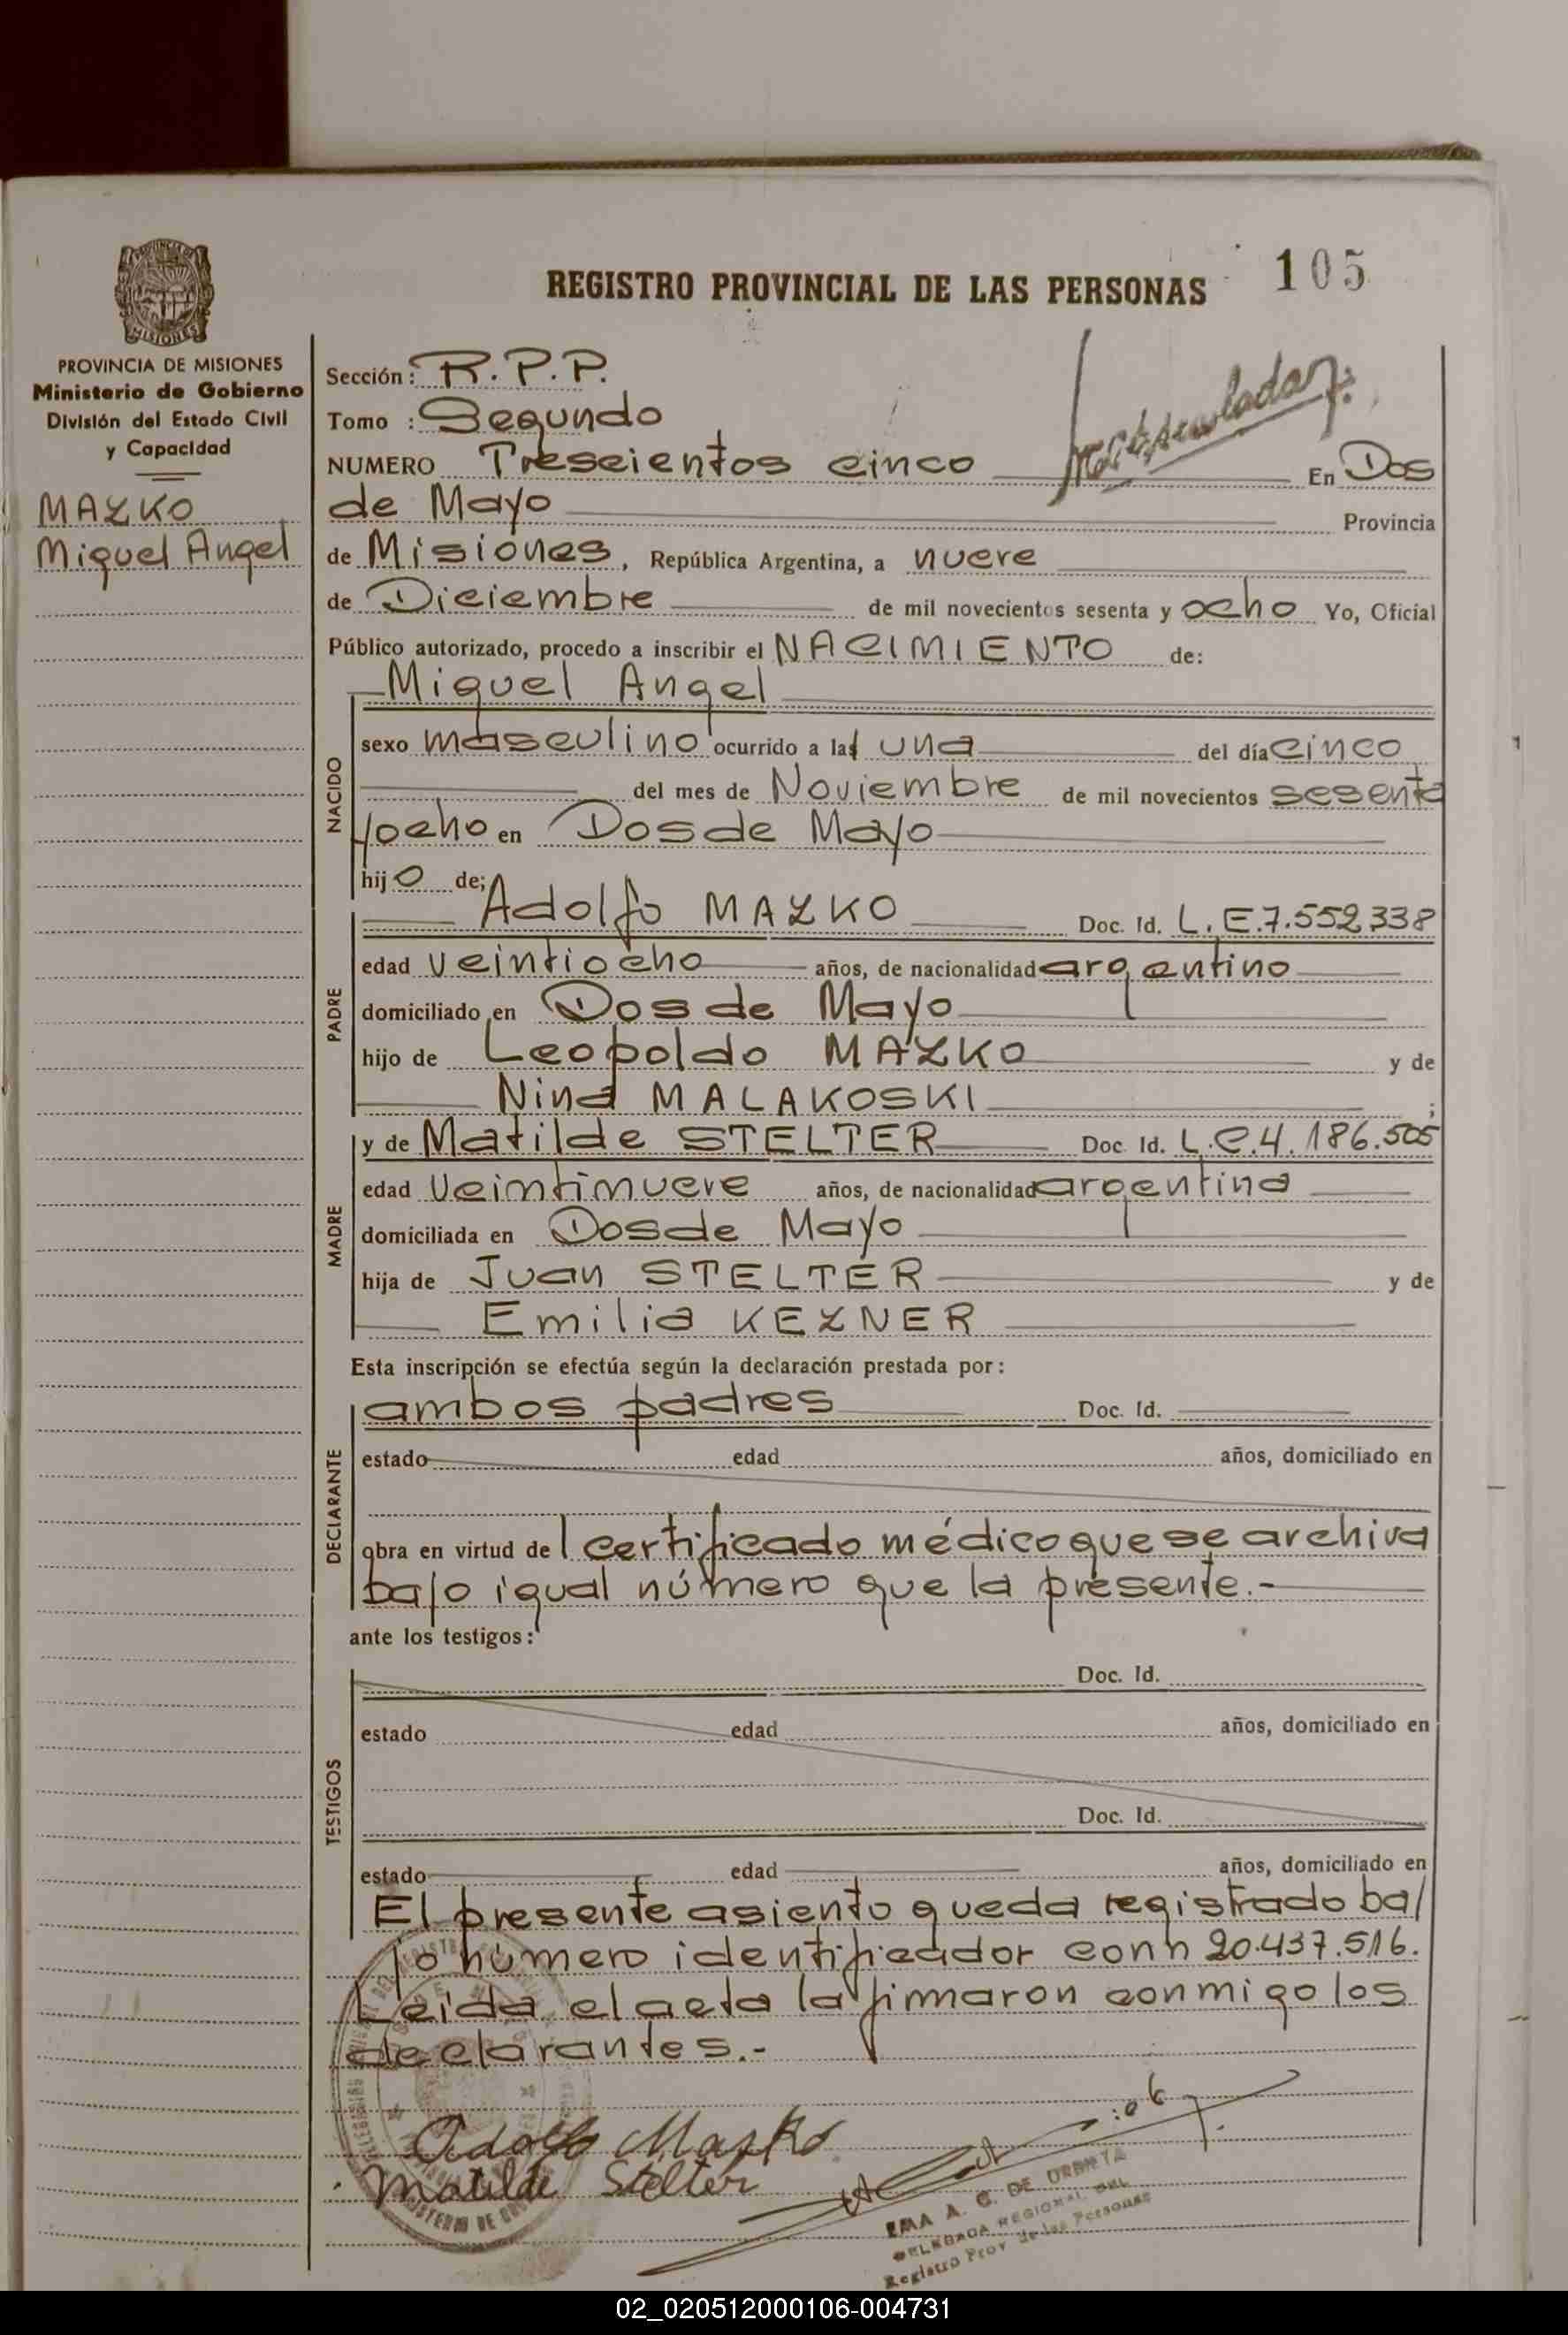 REGISTRO PROVINCIAL DE LAS PERSONAS
105
PROVINCIA DE MISIONES
Ministerio de Gobierno
División del Estado Civil
y Capacidad
MAZKO
Miguel Angel
Sección: R.P.P.
Tomo : Segundo
NUMERO Trescientos cinco En Dos
de Mayo Provincia
de Misiones, República Argentina, a nueve
de Diciembre de mil novecientos sesenta y ocho Yo, Oficial
Público autorizado, procedo a inscribir el NACIMIENTO de:
NACIDO
Miguel Angel
sexo masculino ocurrido a la una del día cinco
del mes de Noviembre de mil novecientos sesenta
y ocho en Dos de Mayo
hijo de;
PADRE
Adolfo MAZKO Doc. Id. L.E.7.552.338
edad veintiocho años, de nacionalidad argentino
domiciliado en Dos de Mayo
hijo de Leopoldo MAZKO y de
Nina MALAKOSKI ;
MADRE
y de Matilde STELTER Doc. Id. L.C.4.186.505
edad veintinueve años, de nacionalidad argentina
domiciliada en Dos de Mayo
hija de Juan STELTER y de
Emilia KEZNER
Esta inscripción se efectúa según la declaración prestada por:
DECLARANTE
ambos padres Doc. Id.
estado edad años, domiciliado en
obra en virtud del certificado médico que se archiva
bajo igual número que la presente.-
ante los testigos:
TESTIGOS
Doc. Id.
estado edad años, domiciliado en
Doc. Id.
estado edad años, domiciliado en
El presente asiento queda registrado ba/
jo número identificador con n 20.437.516.
Leida el acta la firmaron conmigo los
declarantes.-
Adolfo Mazko
Matilde Stelter
EMA A. C. DE URBIETA
DELEGADA REGIONAL DEL
Registro Prov. de las Personas
02_020512000106-004731